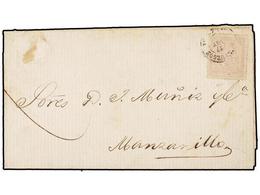 Sres D. J. Muñiz y Cª
Manzanillo